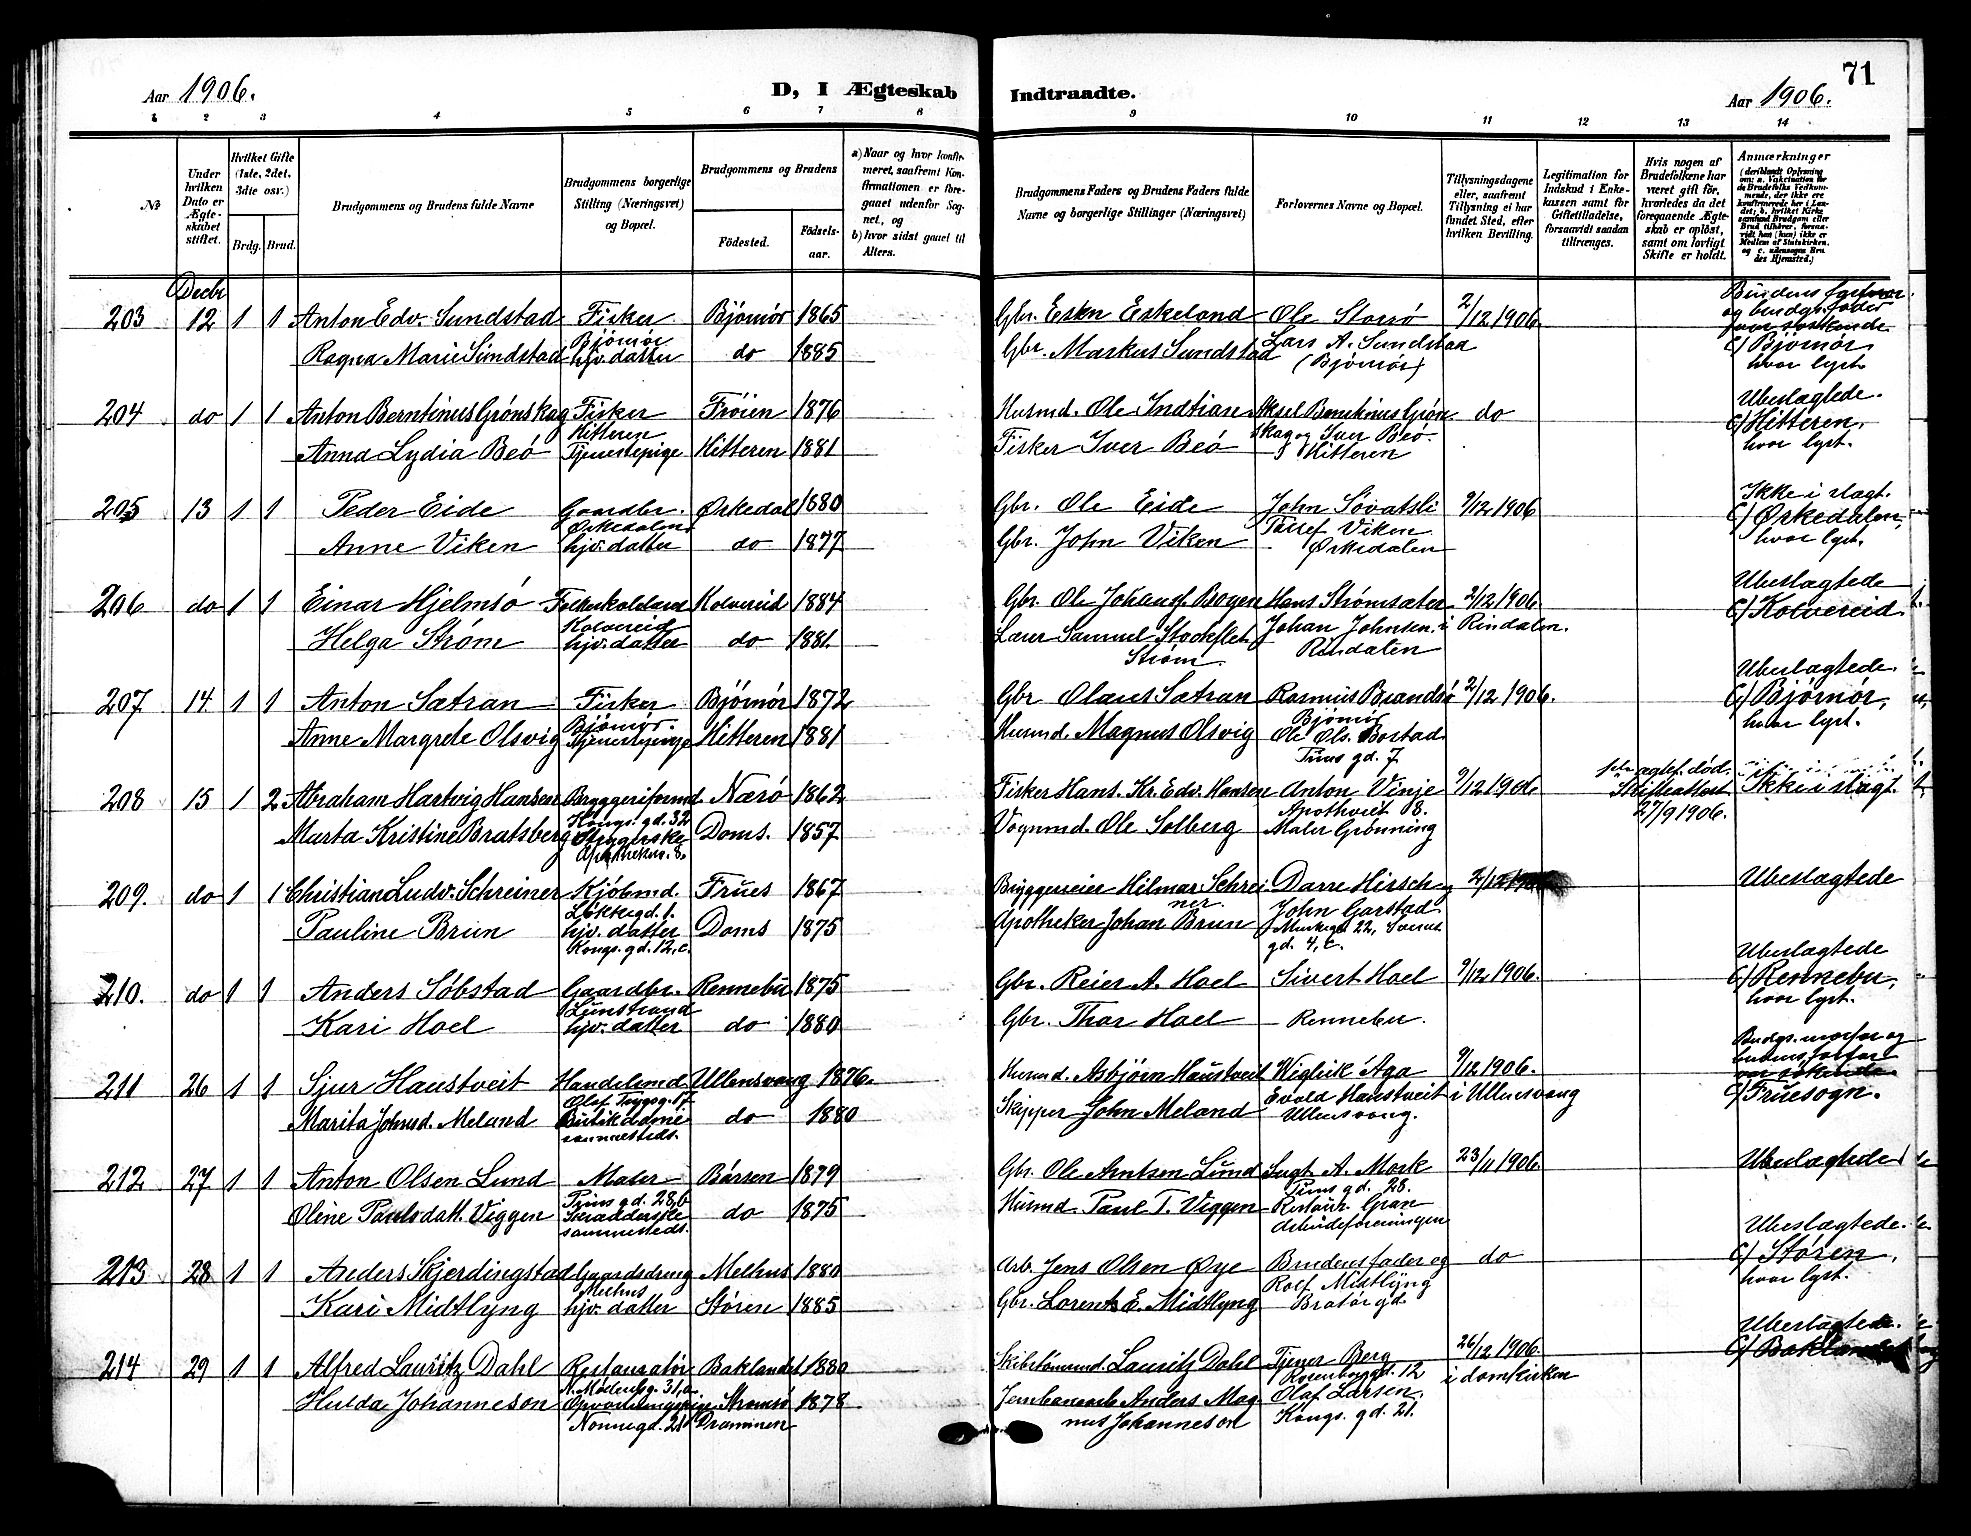 71
Aar 1906.
D, I Ægteskab Indtraadte.
Aar 1906.
1 2 3 4 5 6 7 8 9 10 11 12 13 14
No
Under hvilken Dato er Ægteskabet stiftet.
Hvilket Gifte (1ste, 2det, 3die osv.)
Brdg. Brud.
Brudgommens og Brudens fulde Navne
Brudgommens borgerlige Stilling (Næringsvei) og Bopæl.
Brudgommens og Brudens
Födested. Födsels-aar.
a) Naar og hvor konfirmeret, saafremt Konfirmationen er foregaaet udenfor Sognet, og
b) hvor sidst gaaet til Alters.
Brudgommens Faders og Brudens Faders fulde Navne og borgerlige Stillinger (Næringsvei)
Forlovernes Navne og Bopæl.
Tillysningsdagene eller, saafremt Tillysning ei har fundet Sted, efter hvilken Bevilling.
Legitimation for Indskud i Enkekassen samt for Giftetilladelse, forsaavidt saadan tiltrænges.
Hvis nogen af Brudefolkene har været gift för, hvorledes da det foregaaende Ægteskab er oplöst, samt om lovligt Skifte er holdt.
Anmærkninger
Decbr
203 12 1 1 Anton Edv. Sundstad Fisker Bjørnør 1865 Gbr. Eskn Eskeland Ole Storrø 2/12 1906.
Bjørnør
Ragna Marie Sundstad hjv. datter do 1885 Gbr. Markus Sundstad Lars A. Sundstad (Bjørnør)
Brudens farmor og brudgs. fader
C/ Bjørnør, hvor lyst.
204 do 1 1 Anton Berntinus Grønskag Fisker Frøien 1876 Husmd. Ole Indtian Aksel Berntinus Grønskag og Iver Beø do
Hitteren
Anna Lydia Beö Tjenestepige Hitteren 1881 Fisker Iver Beö Hitteren
Ubeslægtede. C/ Hitteren, hvor lyst.
205 13 1 1 Peder Eide Gaardbr. Ørkedal 1880 Gbr. Ole Eide John Sövatsli 9/12 1906
Ørkedalen
Anne Viken hjv. datter do 1877 Gbr. John Viken Viken Ørkedalen
Ikke i slægt. C/ Ørkedalen, hvor lyst.
206 do 1 1 Einar Hjelmsö Kolvereid 1884 Gbr. Ole Johan Bogen Hans Strömsæter 2/12 1906
Kolvereid
Helga Ström hjv. datter do 1881. Lærer Samuel Stockfleth Ström Johan Johnsen i Rindalen. Rindalen
Ubeslægtede C/ Kolvereid
207 14 1 1 Anton Sætran Fisker Bjørnør 1872 Gbr Olaus Sætran Rasmus Brandsö 2/12 1906.
Bjørnør. Bjørnør
Anne Margrete Olsvig Tjenestepige Hitteren 1881 Husmd. Magnus Olsvig Ole Ols. Bostad Prins gd. 7
Ubeslægtede. C/ Bjørnør, hvor lyst.
208 15 1 2 Abraham Hartvig Hansen Bryggeriformd Nærö 1862 Fisker Hans Kr. Edv. Hansen Anton Vinje 9/12 1906
Kongs. gd. 32 Apothveit 8.
Marta Kristine Bratsberg Doms. 1857 Vognmd. Ole Solberg Maler Grönning
ægtef. död. Skifteattest 27/9 1906.
Ikke i slægt.
209. do 1 1 Christian Ludv. Schreiner Kjöbmd. Frues 1867 Bryggereier Hilmar Schreiner Darre Hirsch og 2/12
Lökkegd. 1.
Pauline Brun hjv. datter Doms 1875 Apotheker Johan Brun John Garstad
Kongs. gd. 12, c. Munkegd 22, gd. 4, c.
Ubeslægtede
210. do 1 1 Anders Söbstad Gaardbr. Rennebu 1875 Gbr. Reier A. Hoel Sivert Hoel 9/12 1906.
Kari Hoel hjv. datter do 1880 Gbr. Thor Hoel Rennebu.
Ubeslægtede C/ Rennebu, hvor lyst.
211 26 1 1 Sjur Haustveit Handelsmd Ullensvang 1876. Husmd. Asbjörn Haustveit Wiglik Aga 9/12 1906.
Olaf Trygsg. 17
Marita Johnsd. Meland Butikdame do 1880 Skipper John Meland Evald Haustveit i Ullensvang
sammesteds. Ullensvang.
Brudgs. morfar og brudens farfar
C/ Fruesogn.
212 27 1 1 Anton Olsen Lund Maler Börsen 1879 Gbr. Ole Arntsen Lund Sergt. A. Mork 23/11 1906
Prins gd. 28b Prins gd. 28.
Oline Paulsdatt. Viggen Skrædderske do 1875 Husmd Paul T. Viggen Restaur. Gran
sammesteds.
Ubeslægtede
213 28 1 1 Anders Skjerdingstad Gaardsdreng Melhus 1880 Arb. Jens Olsen Øye Brudens fader og do
Melhus
Kari Midtlyng hjv. datter Støren 1885 Gbr. Lorents E. Midtlyng Rolf Midtlyng Bratör gd.
Ubeslægtede. C/ Støren, hvor lyst.
214 29 1 1 Alfred Lauritz Dahl Restauratör Baklandet 1880 Skibstömmd. Lauritz Dahl Tjener Berg 26/12 1906.
Rosenborggd. 12 i domkirken
Hulda Johanneson Opvartningspige Strømsö 1878 Jernbanearb Anders Magnus Johanneson Olaf Larsen.
Nonnegd. 21 Drammen Kongs. gd. 21.
Ubeslægtede. C/ Baklandet